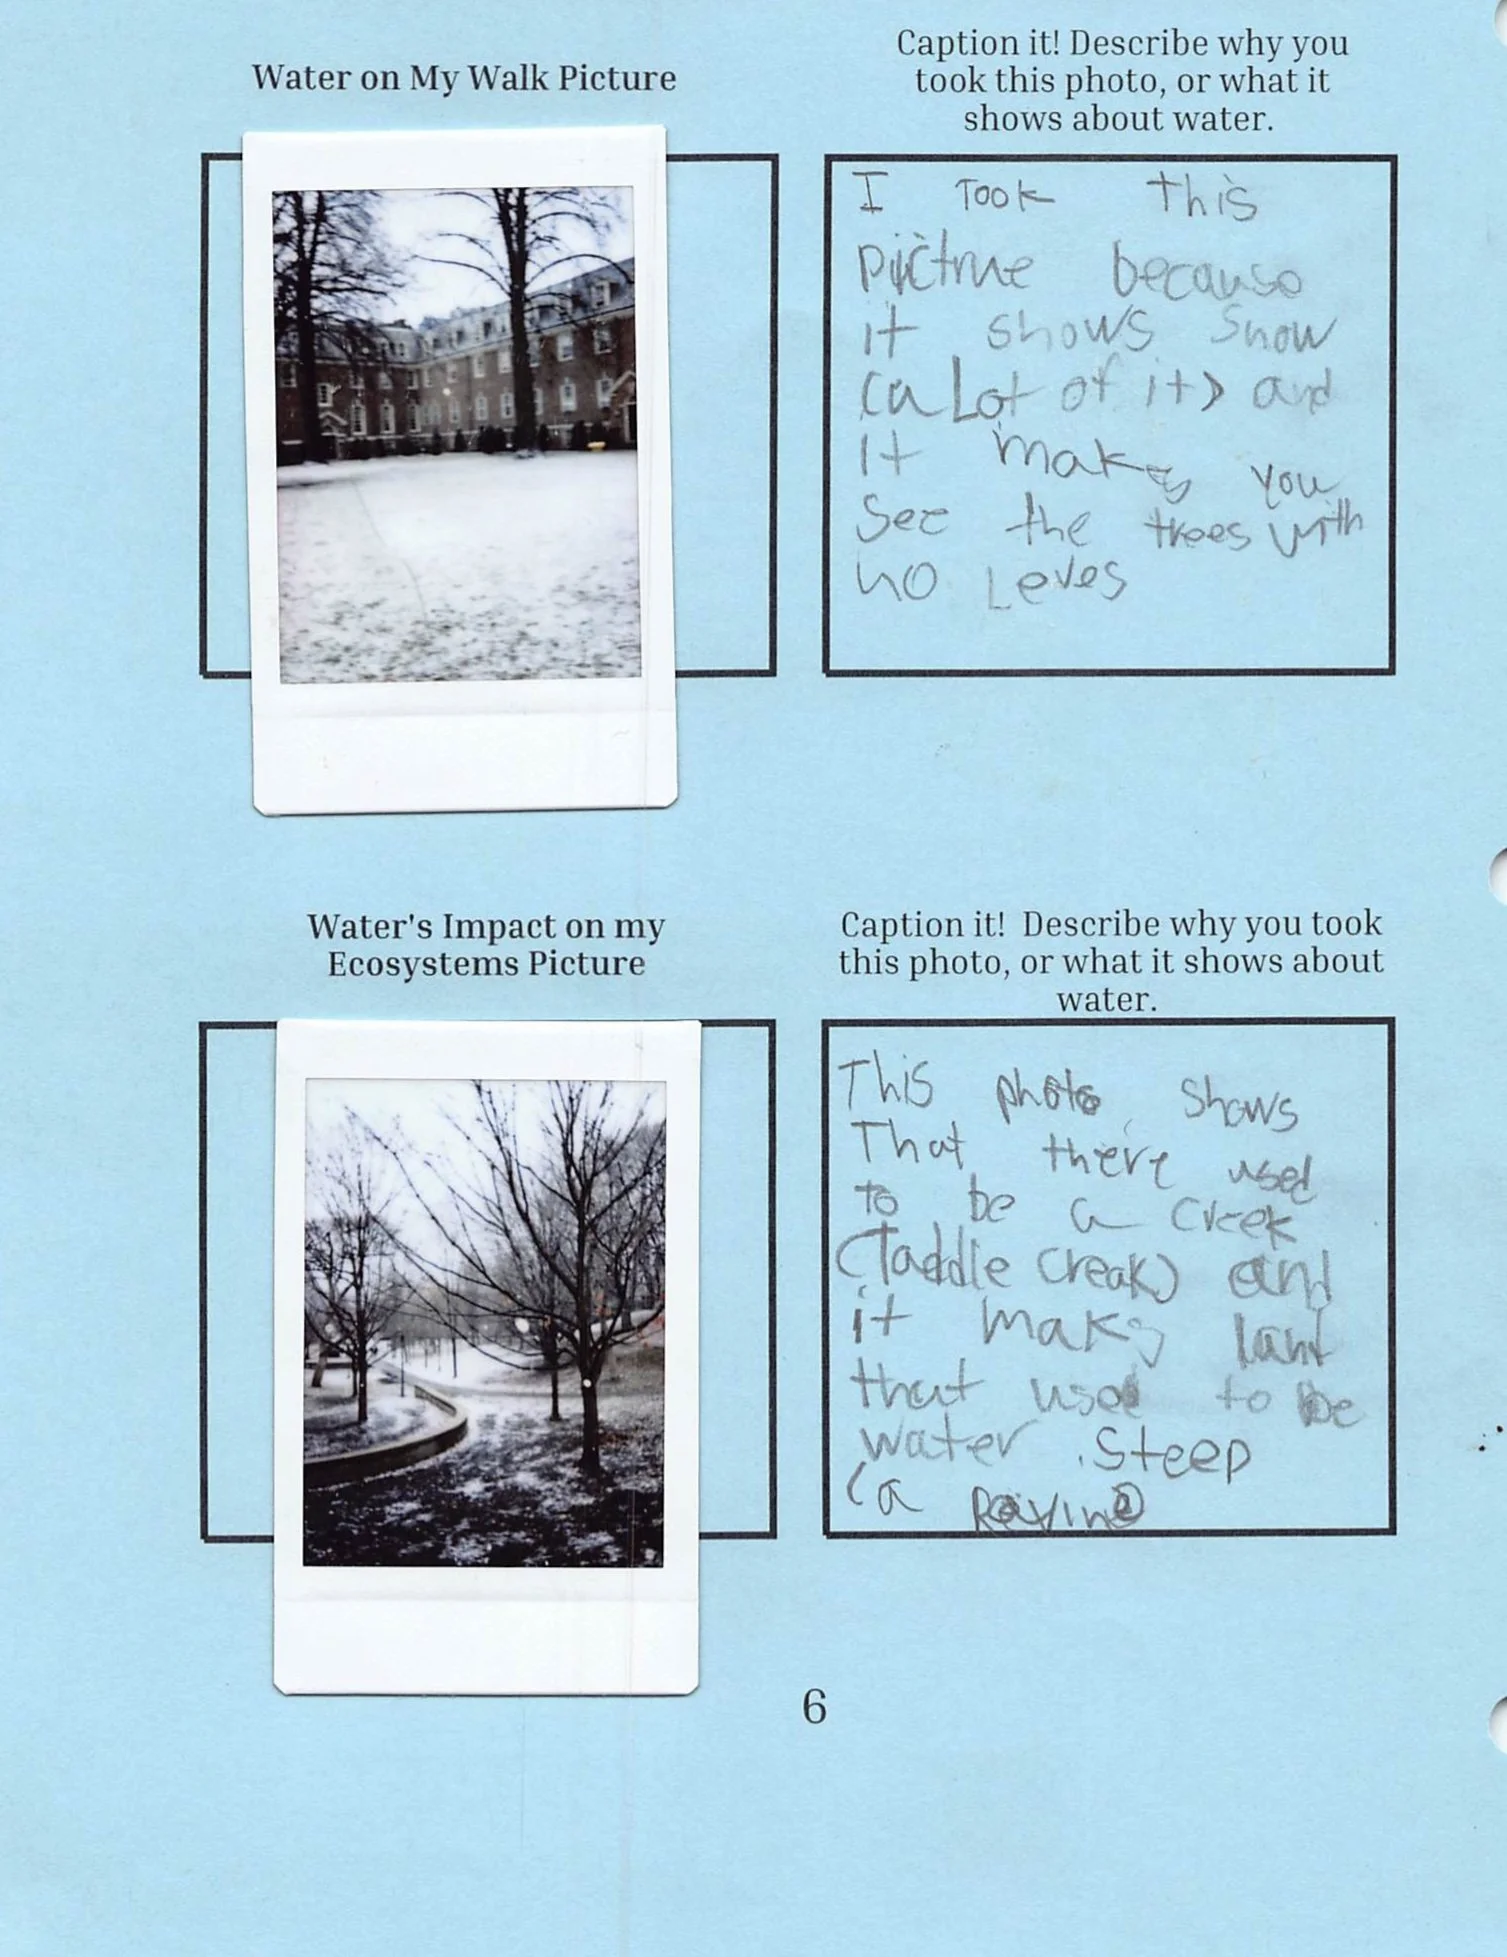 Water on My Walk Picture
Caption it! Describe why you
took this photo, or what it
shows about water.
I Took this
pictrue because
it shows Snow
(a Lot of it) and
it makes you
See the trees with
no Leves
Water's Impact on my
Ecosystems Picture
Caption it! Describe why you took
this photo, or what it shows about
water.
This photo shows
That there used
to be a Creek
(Taddle Creak) and
it makes land
that used to be
water steep
(a Ravine)
6